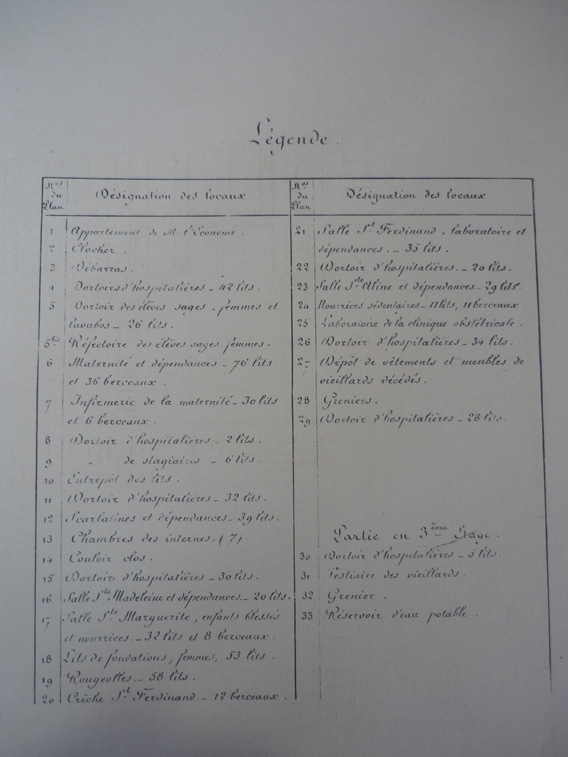 Légende.
Nos du Plan
Désignation des locaux
1 Appartement de M. l'Econome.
2 Clocher.
3 Débarras.
4 Dortoirs d'hospitalières - 42 lits.
5 Dortoir des élèves sages-femmes et
lavabos - 26 lits.
5bis Réfectoire des élèves sages-femmes.
6 Maternité et dépendances - 76 lits
et 36 berceaux.
7 Infirmerie de la maternité - 30 lits
et 6 berceaux.
8 Dortoir d'hospitalières - 2 lits.
9 " de stagiaires - 6 lits.
10 Entrepôt des lits.
11 Dortoir d'hospitalières - 32 lits.
12 Scarlatines et dépendances - 39 lits.
13 Chambres des internes. (7)
14 Couloir clos.
15 Dortoir d'hospitalières - 30 lits.
16 Salle Ste Madeleine et dépendances - 20 lits.
17 Salle Ste Margurite, enfants blessés
et nourrices - 32 lits et 8 berceaux.
18 Lits de fondations, femmes, 53 lits.
19 Rougeolles - 58 lits.
20 Crêche St Ferdinand - 12 berceaux.
Nos du Plan
Désignation des locaux
21 Salle St Ferdinand, laboratoire et
dépendances - 35 lits.
22 Dortoir d'hospitalières - 20 lits.
23 Salle Ste Aline et dépendances - 29 lits.
24 Nourrices sédentaires - 11 lits, 11 berceaux.
25 Laboratoire de la clinique obstétricale.
26 Dortoir d'hospitalières - 34 lits.
27 Dépôt de vêtements et meubles de
vieillards décédés.
28 Greniers.
29 Dortoir d'hospitalières - 28 lits.
Partie en 3ème Etage.
30 Dortoir d'hospitalières - 5 lits.
31 Vestiaire des vieillards.
32 Grenier.
33 Réservoir d'eau potable.